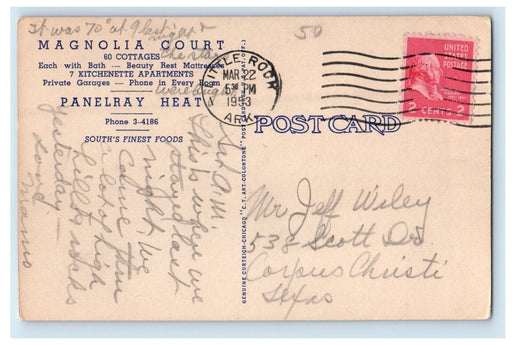 It was 70° at 9 last night
50
MAGNOLIA COURT
60 COTTAGES
Each with Bath — Beauty Rest Mattresses
7 KITCHENETTE APARTMENTS
Private Garages — Phone in Every Room
PANELRAY HEAT
Phone 3-4186
SOUTH'S FINEST FOODS
LITTLE ROCK
MAR 22
5 30 PM
1953
ARK.
UNITED
STATES
POSTAGE
2 CENTS 2
POST CARD
GENUINE CURTEICH-CHICAGO "C.T. ART-COLORTONE" POST CARD
Sun A.M.
This is where we
stayed last
night. We
came thru
a lot of high
hills
yesterday
Love
Mr Jeff Wiley
538 Scott Dr.
Corpus Christi
Texas